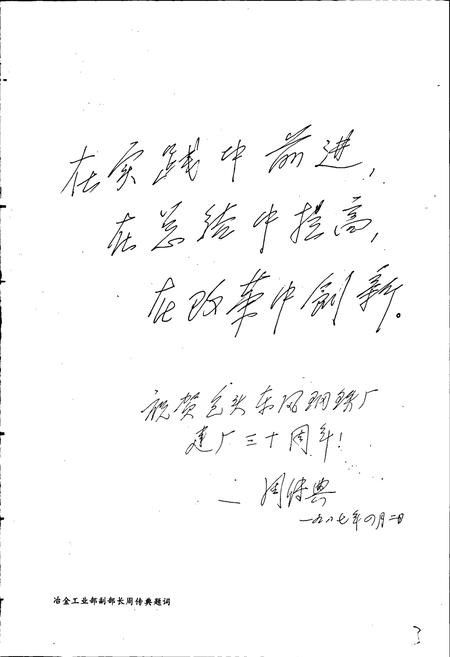 在实践中前进，
在总结中提高，
在改革中创新。
祝贺包头东风钢铁厂
建厂三十周年！
— 周传典
一九八七年四月二日
冶金工业部副部长周传典题词
3